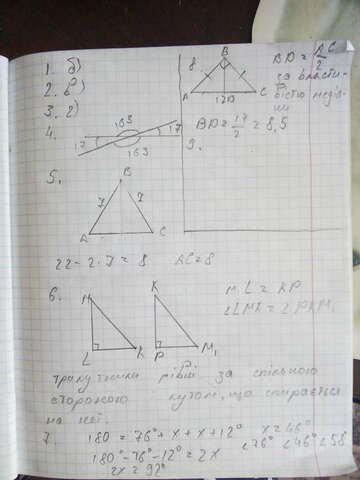 1. б)
2. в)
3. г)
4.
163
17
17
163
5.
B
7
7
A
C
22 - 2 · 7 = 8    AC = 8
6.
K
L
K
P
M₁
ML = KP
трикутники рівні за спільною
стороною
кутом, що спирається
на неї.
7. 180 = 76° + x + x + 12°    x = 46°
180° - 76° - 12° = 2x
2x = 92°
<76° <46° <58°
8.
B
A
C
17
BD = AC/2
за власти-
вістю медіа-
ни
BD = 17/2 = 8,5
9.